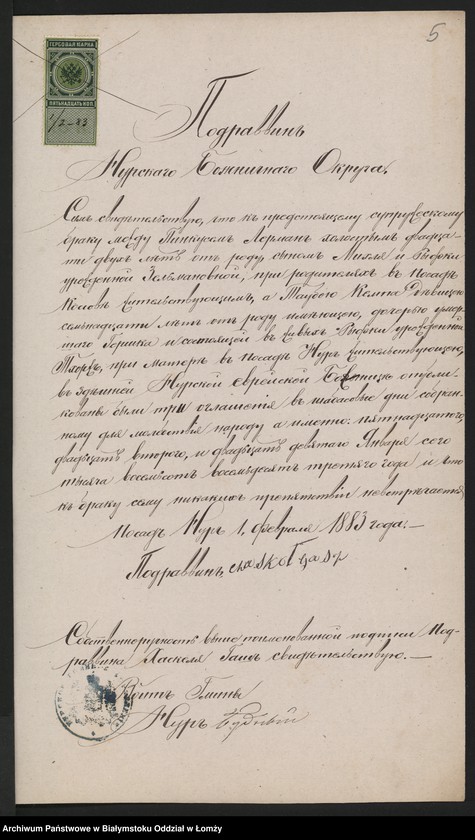 5
ГЕРБОВАЯ МАРКА
ПЯТНАДЦАТЬ КОП
1/2-83
Подраввинъ
Нурскаго Божничнаго Округа.
Симъ свидѣтельствую, что къ предстоящему супружескому
браку между Пинкусомъ Лерман холостымъ двадца-
ти двухъ лѣтъ отъ роду, сыномъ и Ривки
урожденной Зельмановной, при родителяхъ въ Посадѣ
жительствующимъ, а Таубою дѣвицею
семнадцати лѣтъ отъ роду имѣющею, дочерью умер-
шаго Гершка и состоящей въ живыхъ Ривки урожденной
при матери въ Посадѣ Нуръ жительствующею,
въ здѣшней Нурской Еврейской Божницѣ опубли-
кованы были три оглашенія въ шабасовые дни собран-
ному для молебствія народу а именно: пятнадцатаго,
двадцать втораго, и двадцать девятаго Января сего
тысяча восемьсотъ восемьдесятъ третьяго года и что
къ браку сему никакихъ препятствій не встрѣчается
Посадъ Нуръ 1, февраля 1883 года.—
Подраввинъ,
Собственноручность выше поименованной подписи Под-
раввина Хаскеля Гаш свидѣтельствую.—
Войтъ Гмины
Нуръ
Archiwum Państwowe w Białymstoku Oddział w Łomży